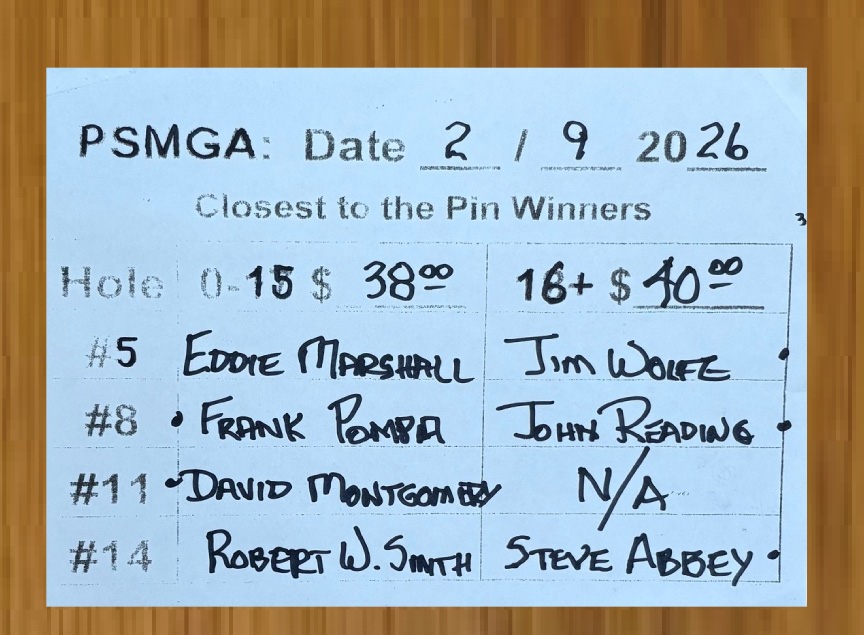 PSMGA: Date 2 / 9 2026
Closest to the Pin Winners
3
Hole 0-15 $ 38⁰⁰ 16+ $ 40⁰⁰
#5 EDDIE MARSHALL JIM WOLFE
#8 • FRANK POMPA JOHN READING •
#11 • DAVID MONTGOMERY N/A
#14 ROBERT W. SMITH STEVE ABBEY •